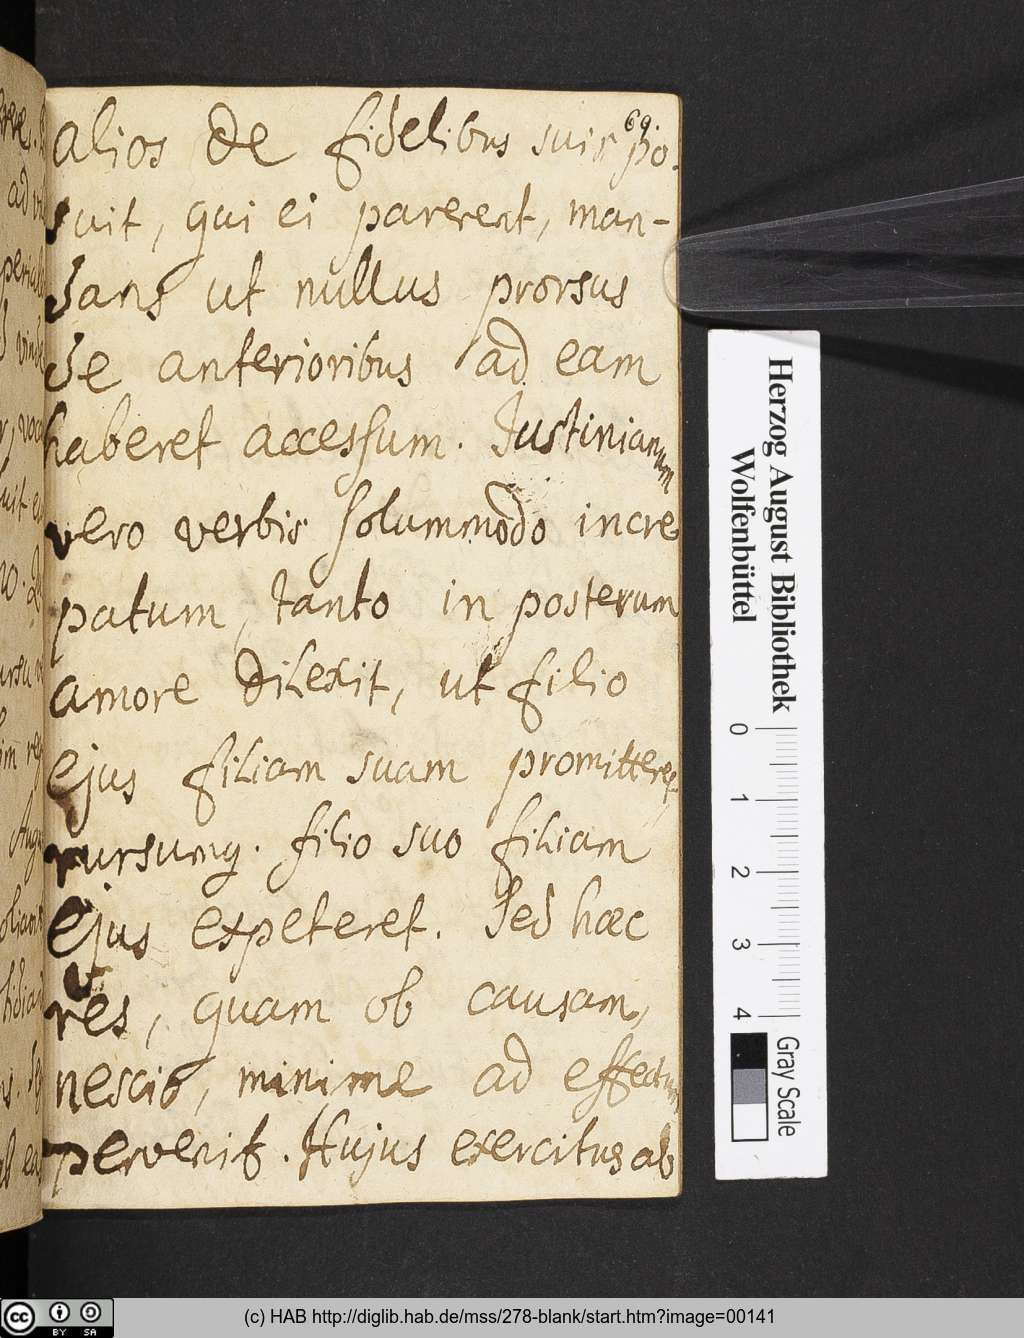 69
alios de fidelibus suis po-
suit, qui ei parerent, man-
dans ut nullus prorsus
de anterioribus ad eam
haberet accessum. Justinianum
vero verbis solummodo incre
patum, tanto in posterum
amore dilexit, ut filio
ejus filiam suam promitteret,
rursumq. filio suo filiam
ejus expeteret. Sed hæc
res, quam ob causam,
nescio, minime ad effectum
pervenit. Hujus exercitus ab
Herzog August Bibliothek
Wolfenbüttel
0 1 2 3 4
Gray Scale
cc BY SA
(c) HAB http://diglib.hab.de/mss/278-blank/start.htm?image=00141